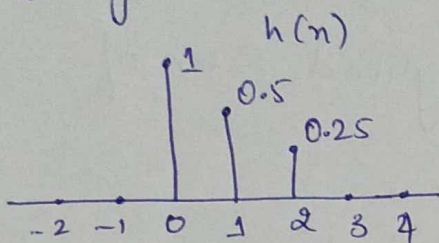 h(n)
1
0.5
0.25
-2 -1 0 1 2 3 4